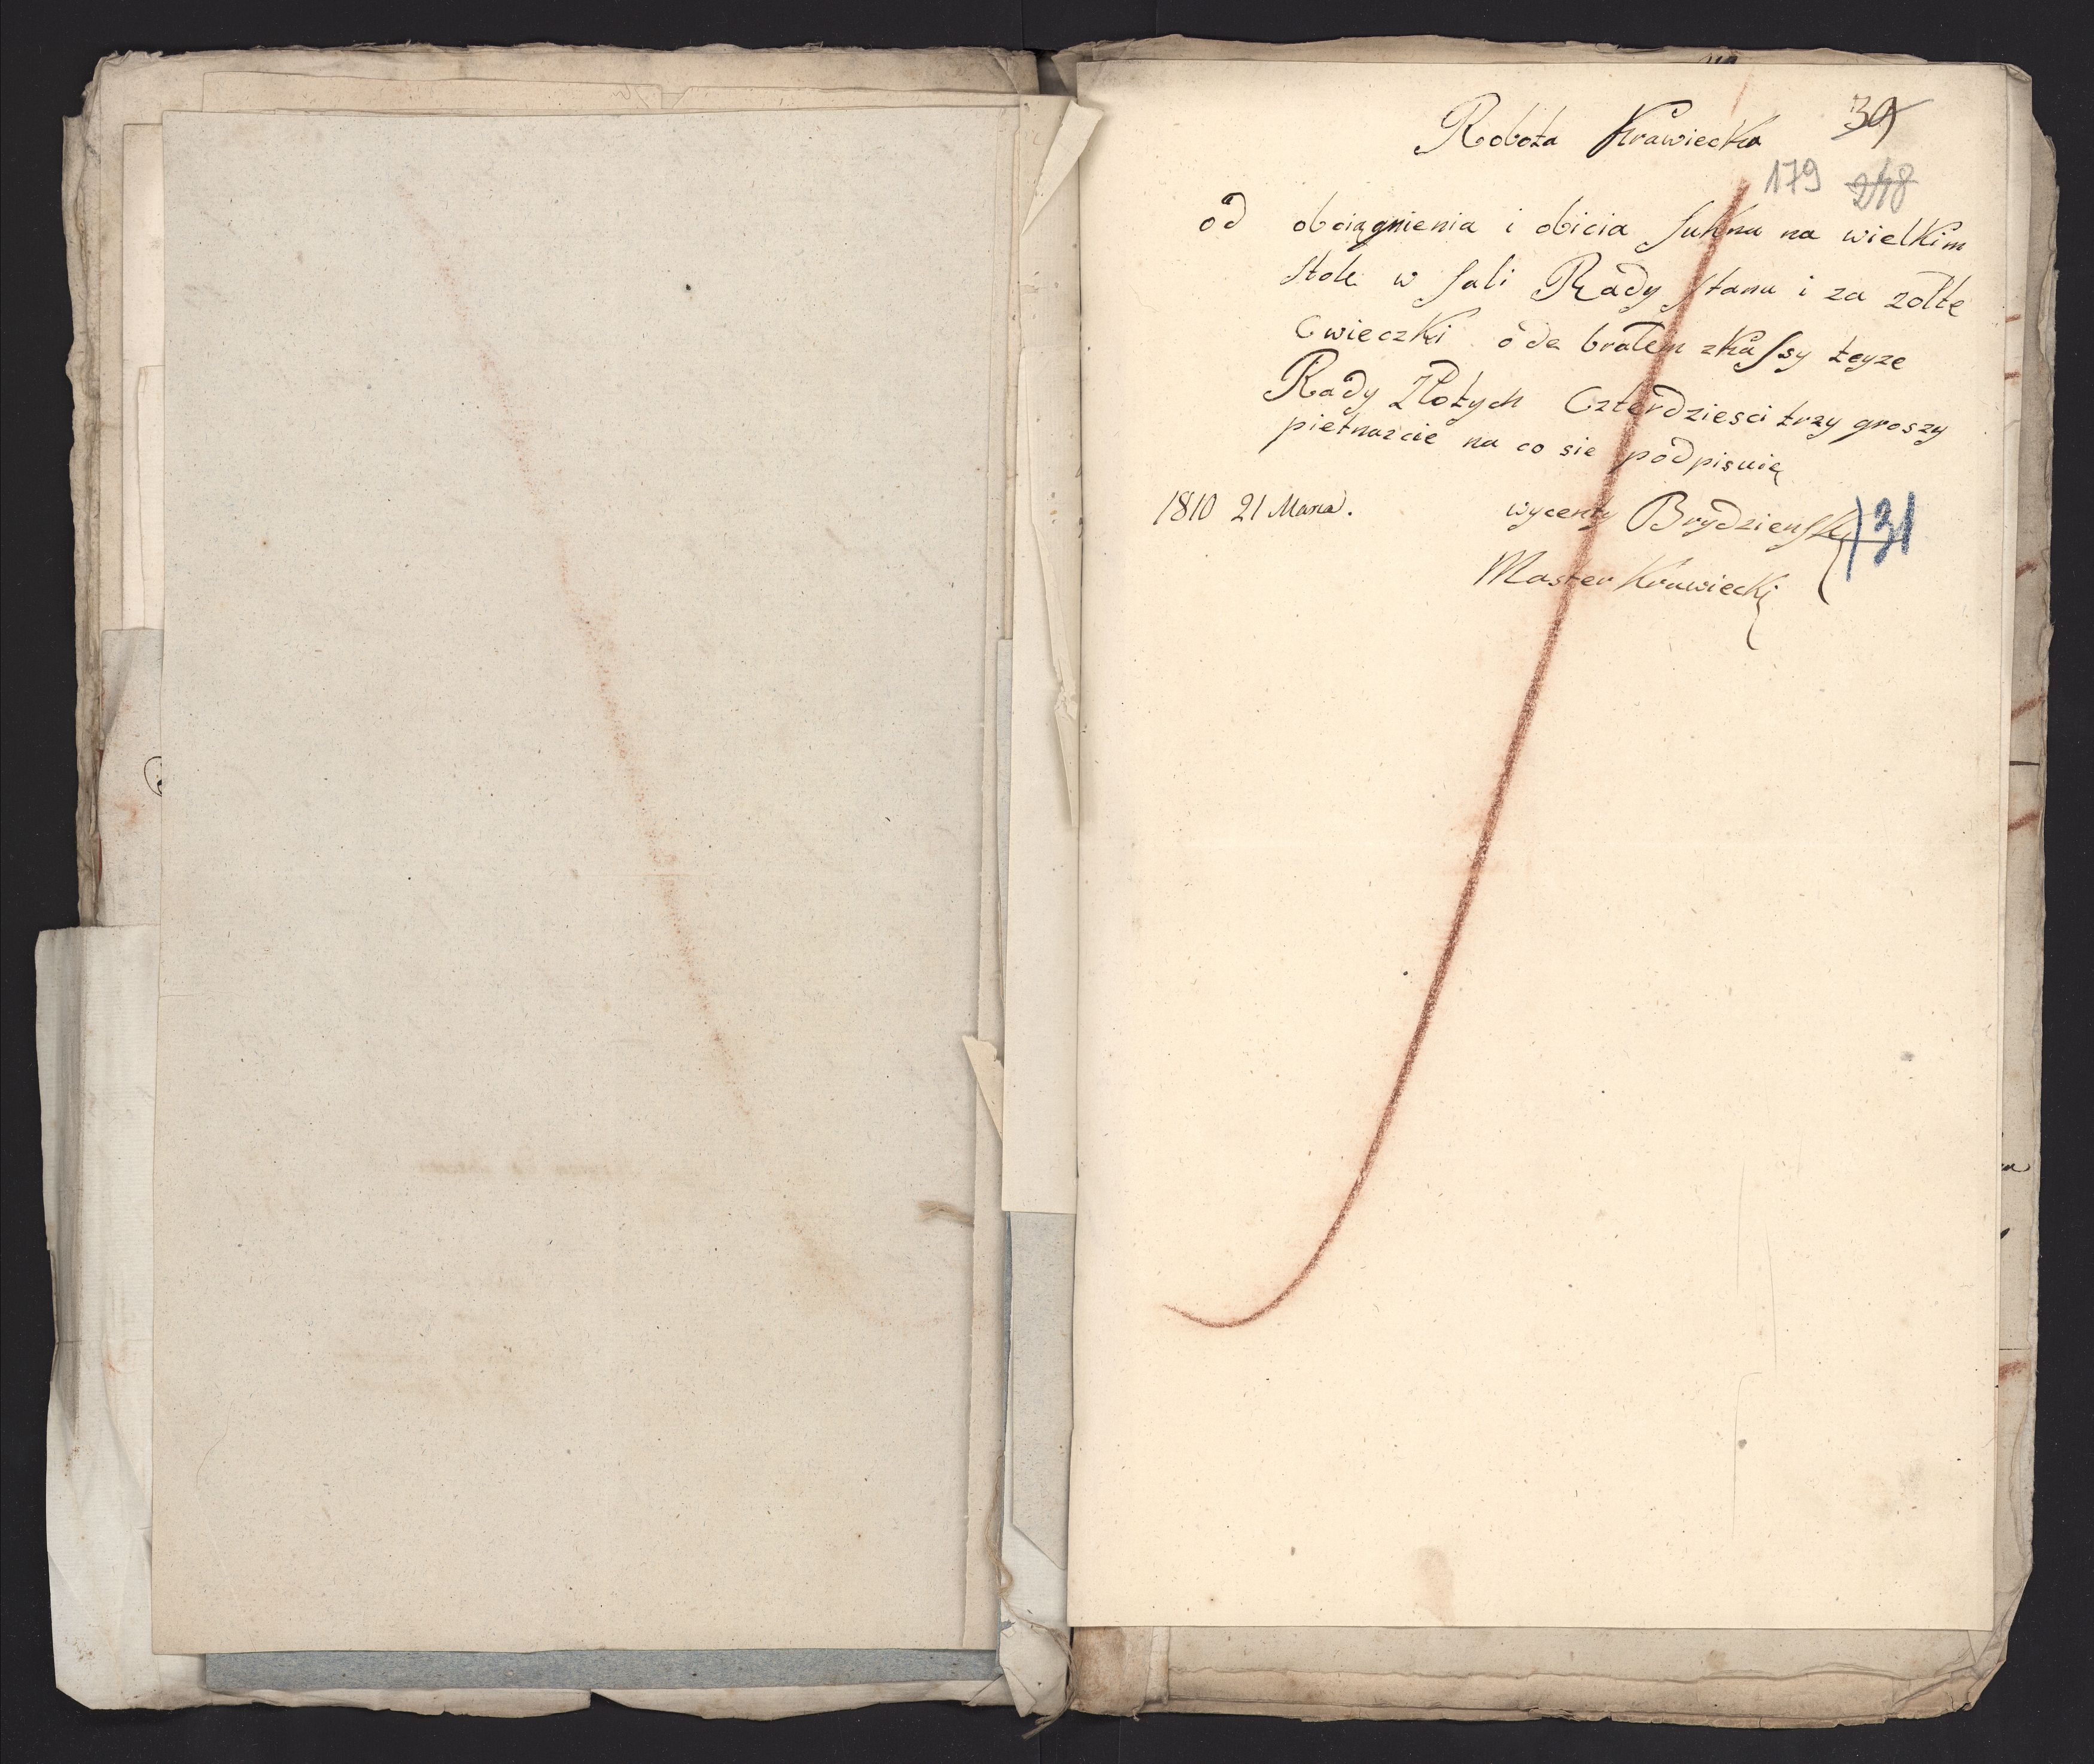 Robota Krawiecka 39
179 248
od obciągnienia i obicia sukna na wielkim
stole w sali Rady stanu i za zołte
Cwieczki ode brałem zkassy teyze
Rady Złotych Czterdziesci trzy groszy
pietnascie na co sie podpisuię
1810 21 Marca. wycenty Brydzienski
)31
Master Krawiecki